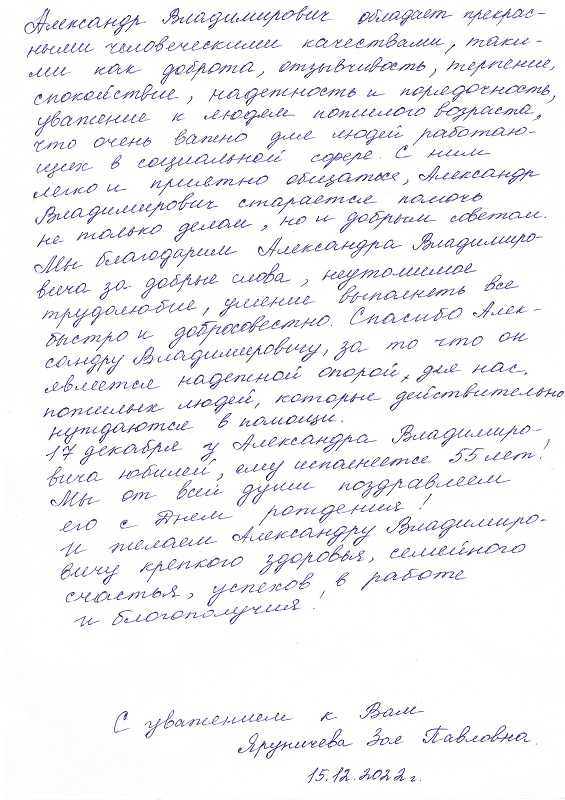 Александр Владимирович обладает прекрас-
ными человеческими качествами, таки-
ми как доброта, отзывчивость, терпение,
спокойствие, надежность и порядочность,
уважение к людям пожилого возраста,
что очень важно для людей работаю-
щих в социальной сфере. С ним
легко и приятно общаться, Александр
Владимирович старается помочь
не только делом, но и добрым советом.
Мы благодарим Александра Владимиро-
вича за добрые слова, неутомимое
трудолюбие, умение выполнять все
быстро и добросовестно. Спасибо Алек-
сандру Владимировичу, за то что он
является надежной опорой, для нас,
пожилых людей, которые действительно
нуждаются в помощи.
17 декабря у Александра Владимиро-
вича юбилей, ему исполняется 55 лет!
Мы от всей души поздравляем
его с Днем рождения!
И желаем Александру Владимиро-
вичу крепкого здоровья, семейного
счастья, успехов в работе
и благополучия!
С уважением к Вам
Яруничева Зоя Павловна.
15.12.2022 г.